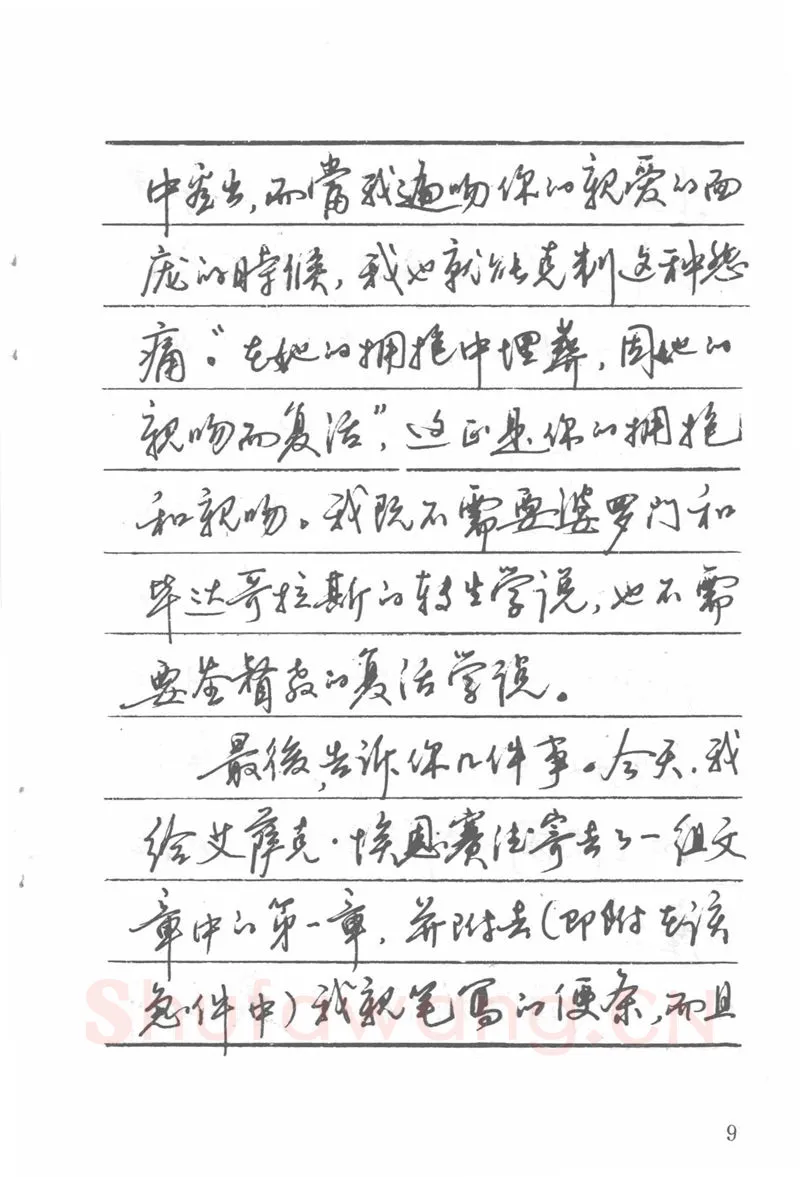 中爱出,而當我遍吻你的親爱的面
庞的時候,我也就能克制这种悲
痛。“在她的拥抱中埋葬,因她的
親吻而复活”,这正是你的拥抱
和親吻。我既不需要婆罗门和
毕达哥拉斯的转生学说,也不需
要基督教的复活学说。
最後,告诉你几件事。今天,我
给艾萨克·埃恩赛德寄去了一组文
章中的第一章,并附去(即附在该
急件中)我親笔写的便条,而且
Shufawang.CN
9